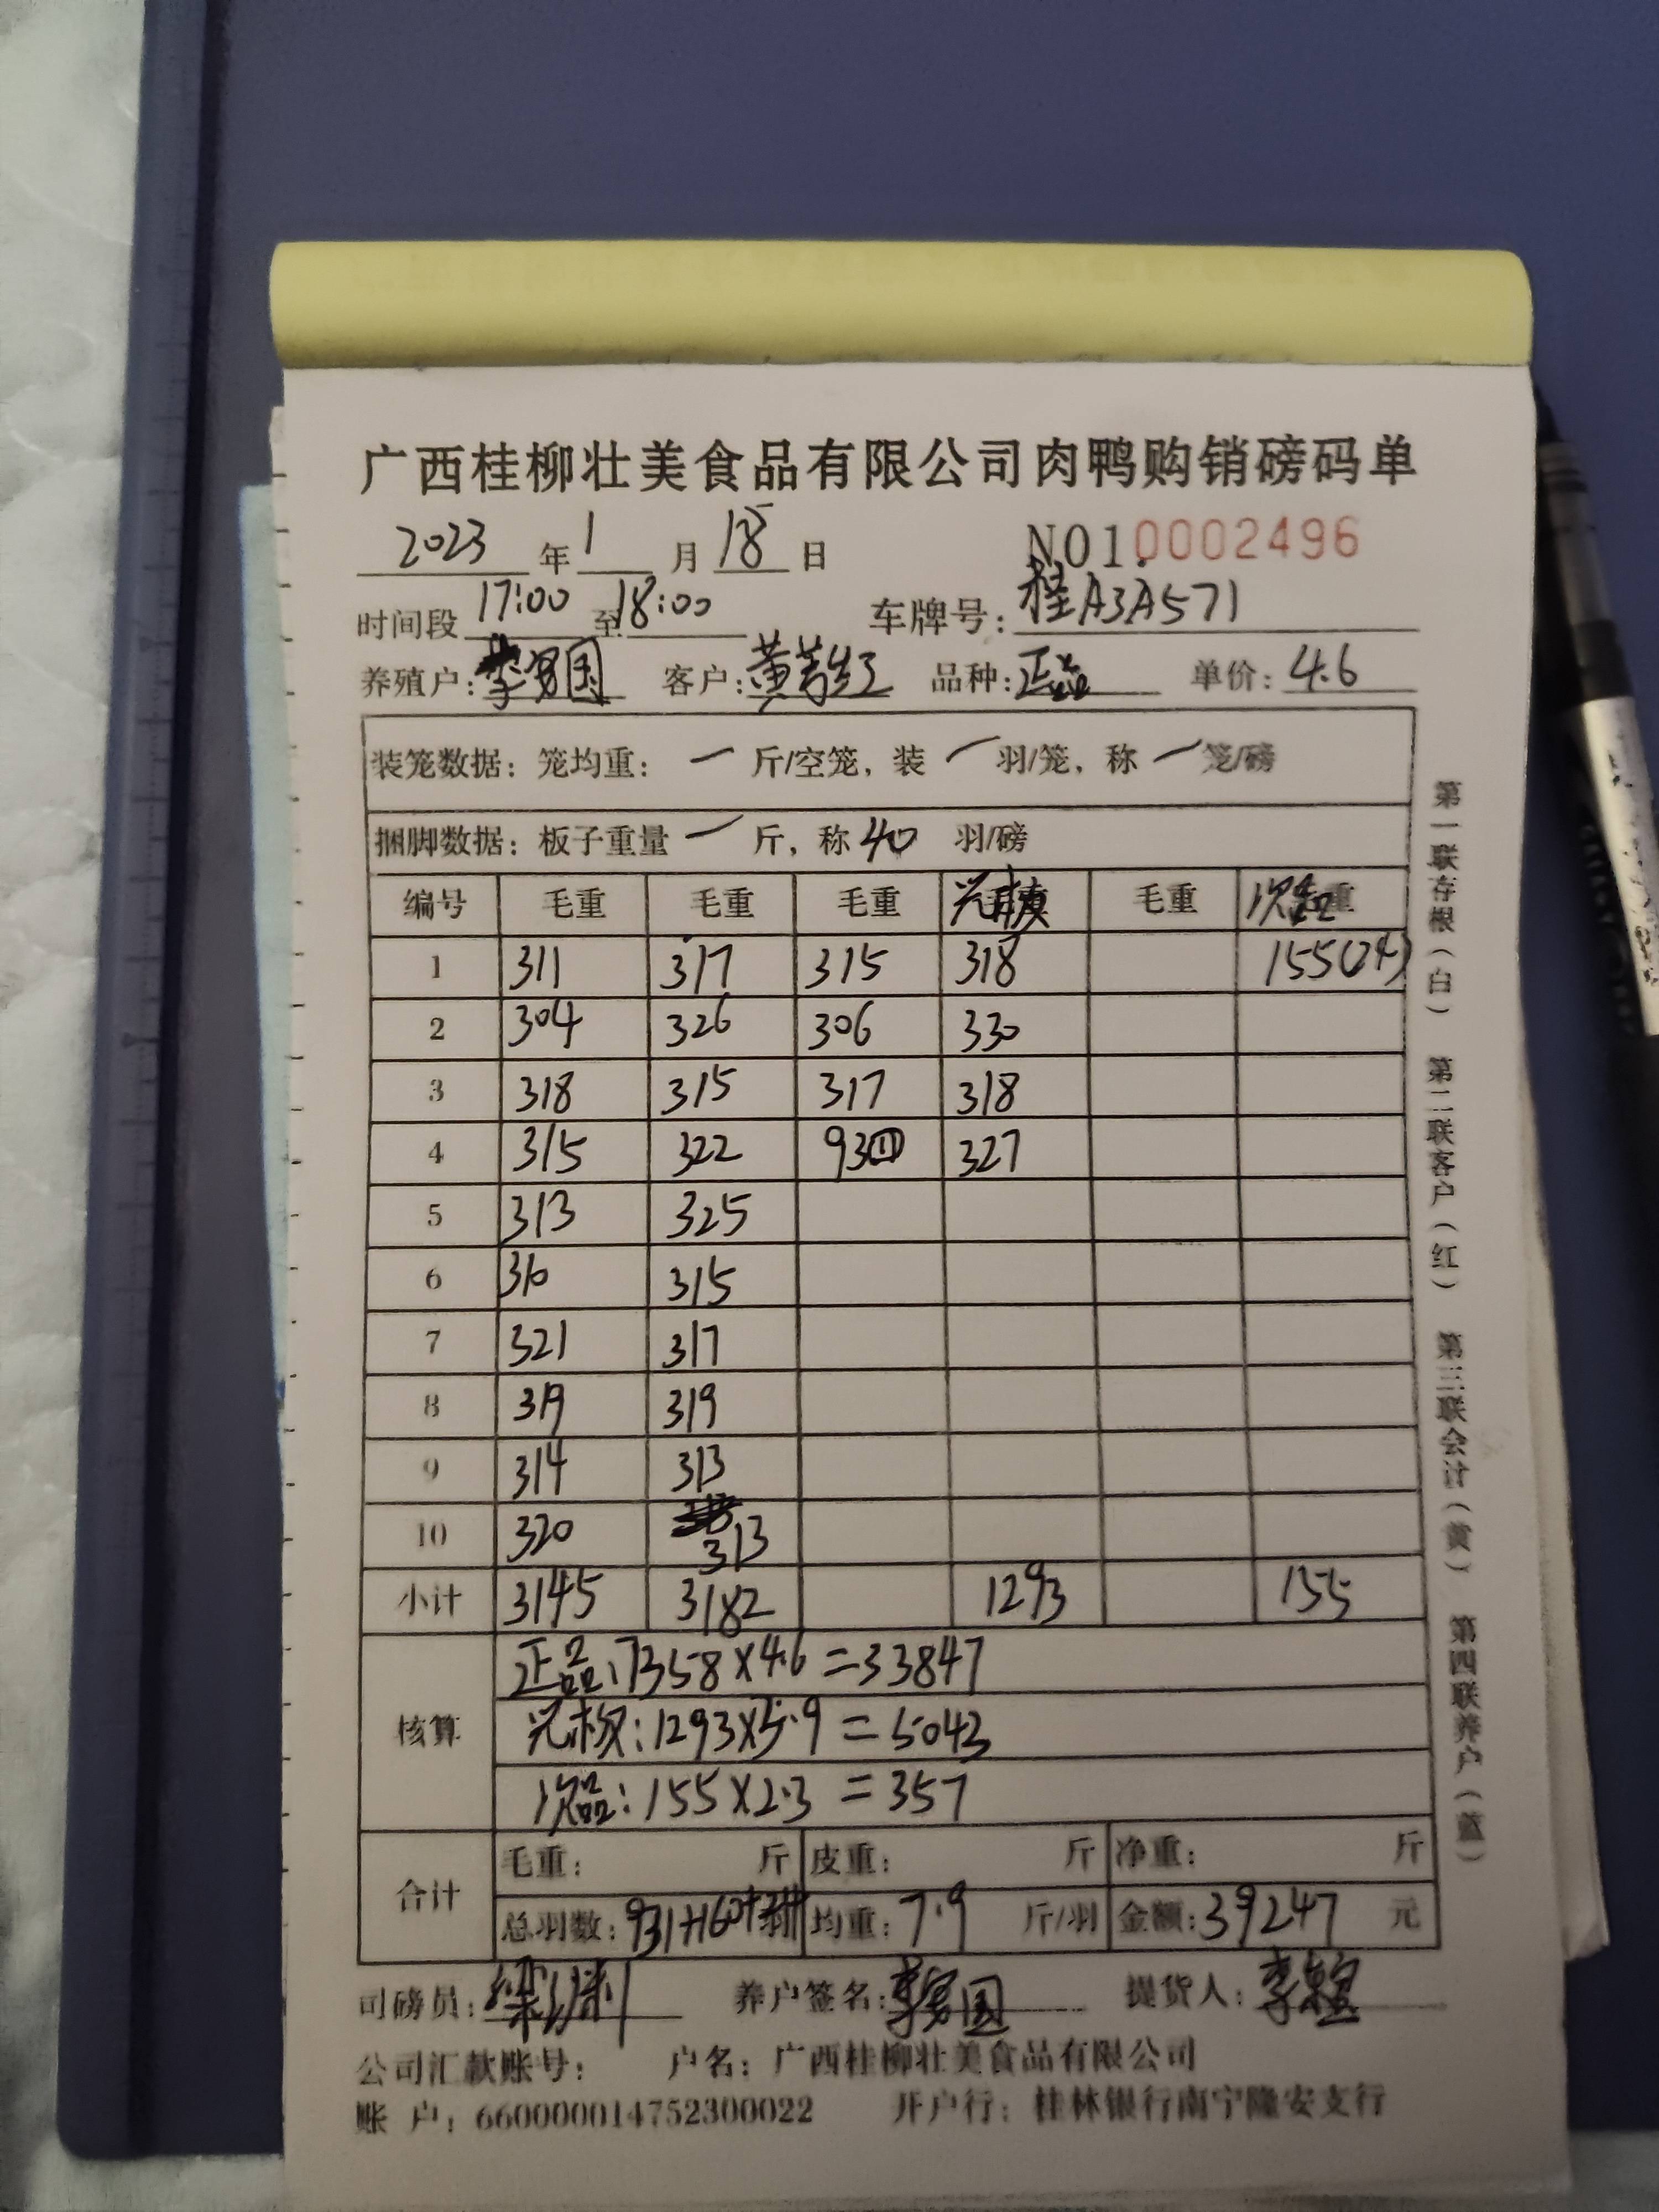 广西桂柳壮美食品有限公司肉鸭购销磅码单
2023 年 1 月 18 日 NO10002496
时间段 17:00 至 18:00 车牌号: 桂A3A571
养殖户: 李 国 客户: 黄 红 品种: 正品 单价: 4.6
装笼数据: 笼均重: 一 斤/空笼, 装 一 羽/笼, 称 一 笼/磅
捆脚数据: 板子重量 一 斤, 称 40 羽/磅
编号 毛重 毛重 毛重 毛重 次品
1 311 317 315 318 155(24)
2 304 326 306 330
3 318 315 317 318
4 315 322 93⑪ 327
5 313 325
6 310 315
7 321 317
8 319 319
9 314 313
10 320 313
小计 3145 3182 1293 155
核算
正品: 7358×4.6=33847
1293×3.9=5043
次品: 155×2.3=357
合计 毛重: 斤 皮重: 斤 净重: 斤
总羽数: 931+160+ 均重: 7.9 斤/羽 金额: 39247 元
司磅员: 梁 养户签名: 李 国 提货人: 李
公司汇款账号: 户名: 广西桂柳壮美食品有限公司
账 户: 660000014752300022 开户行: 桂林银行南宁隆安支行
第一联存根(白) 第二联客户(红) 第三联会计(黄) 第四联养户(蓝)